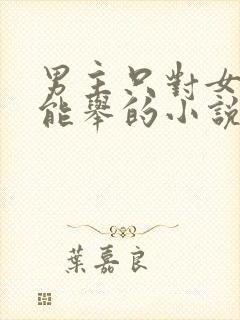 男主只對女
能舉的小說
葉嘉良